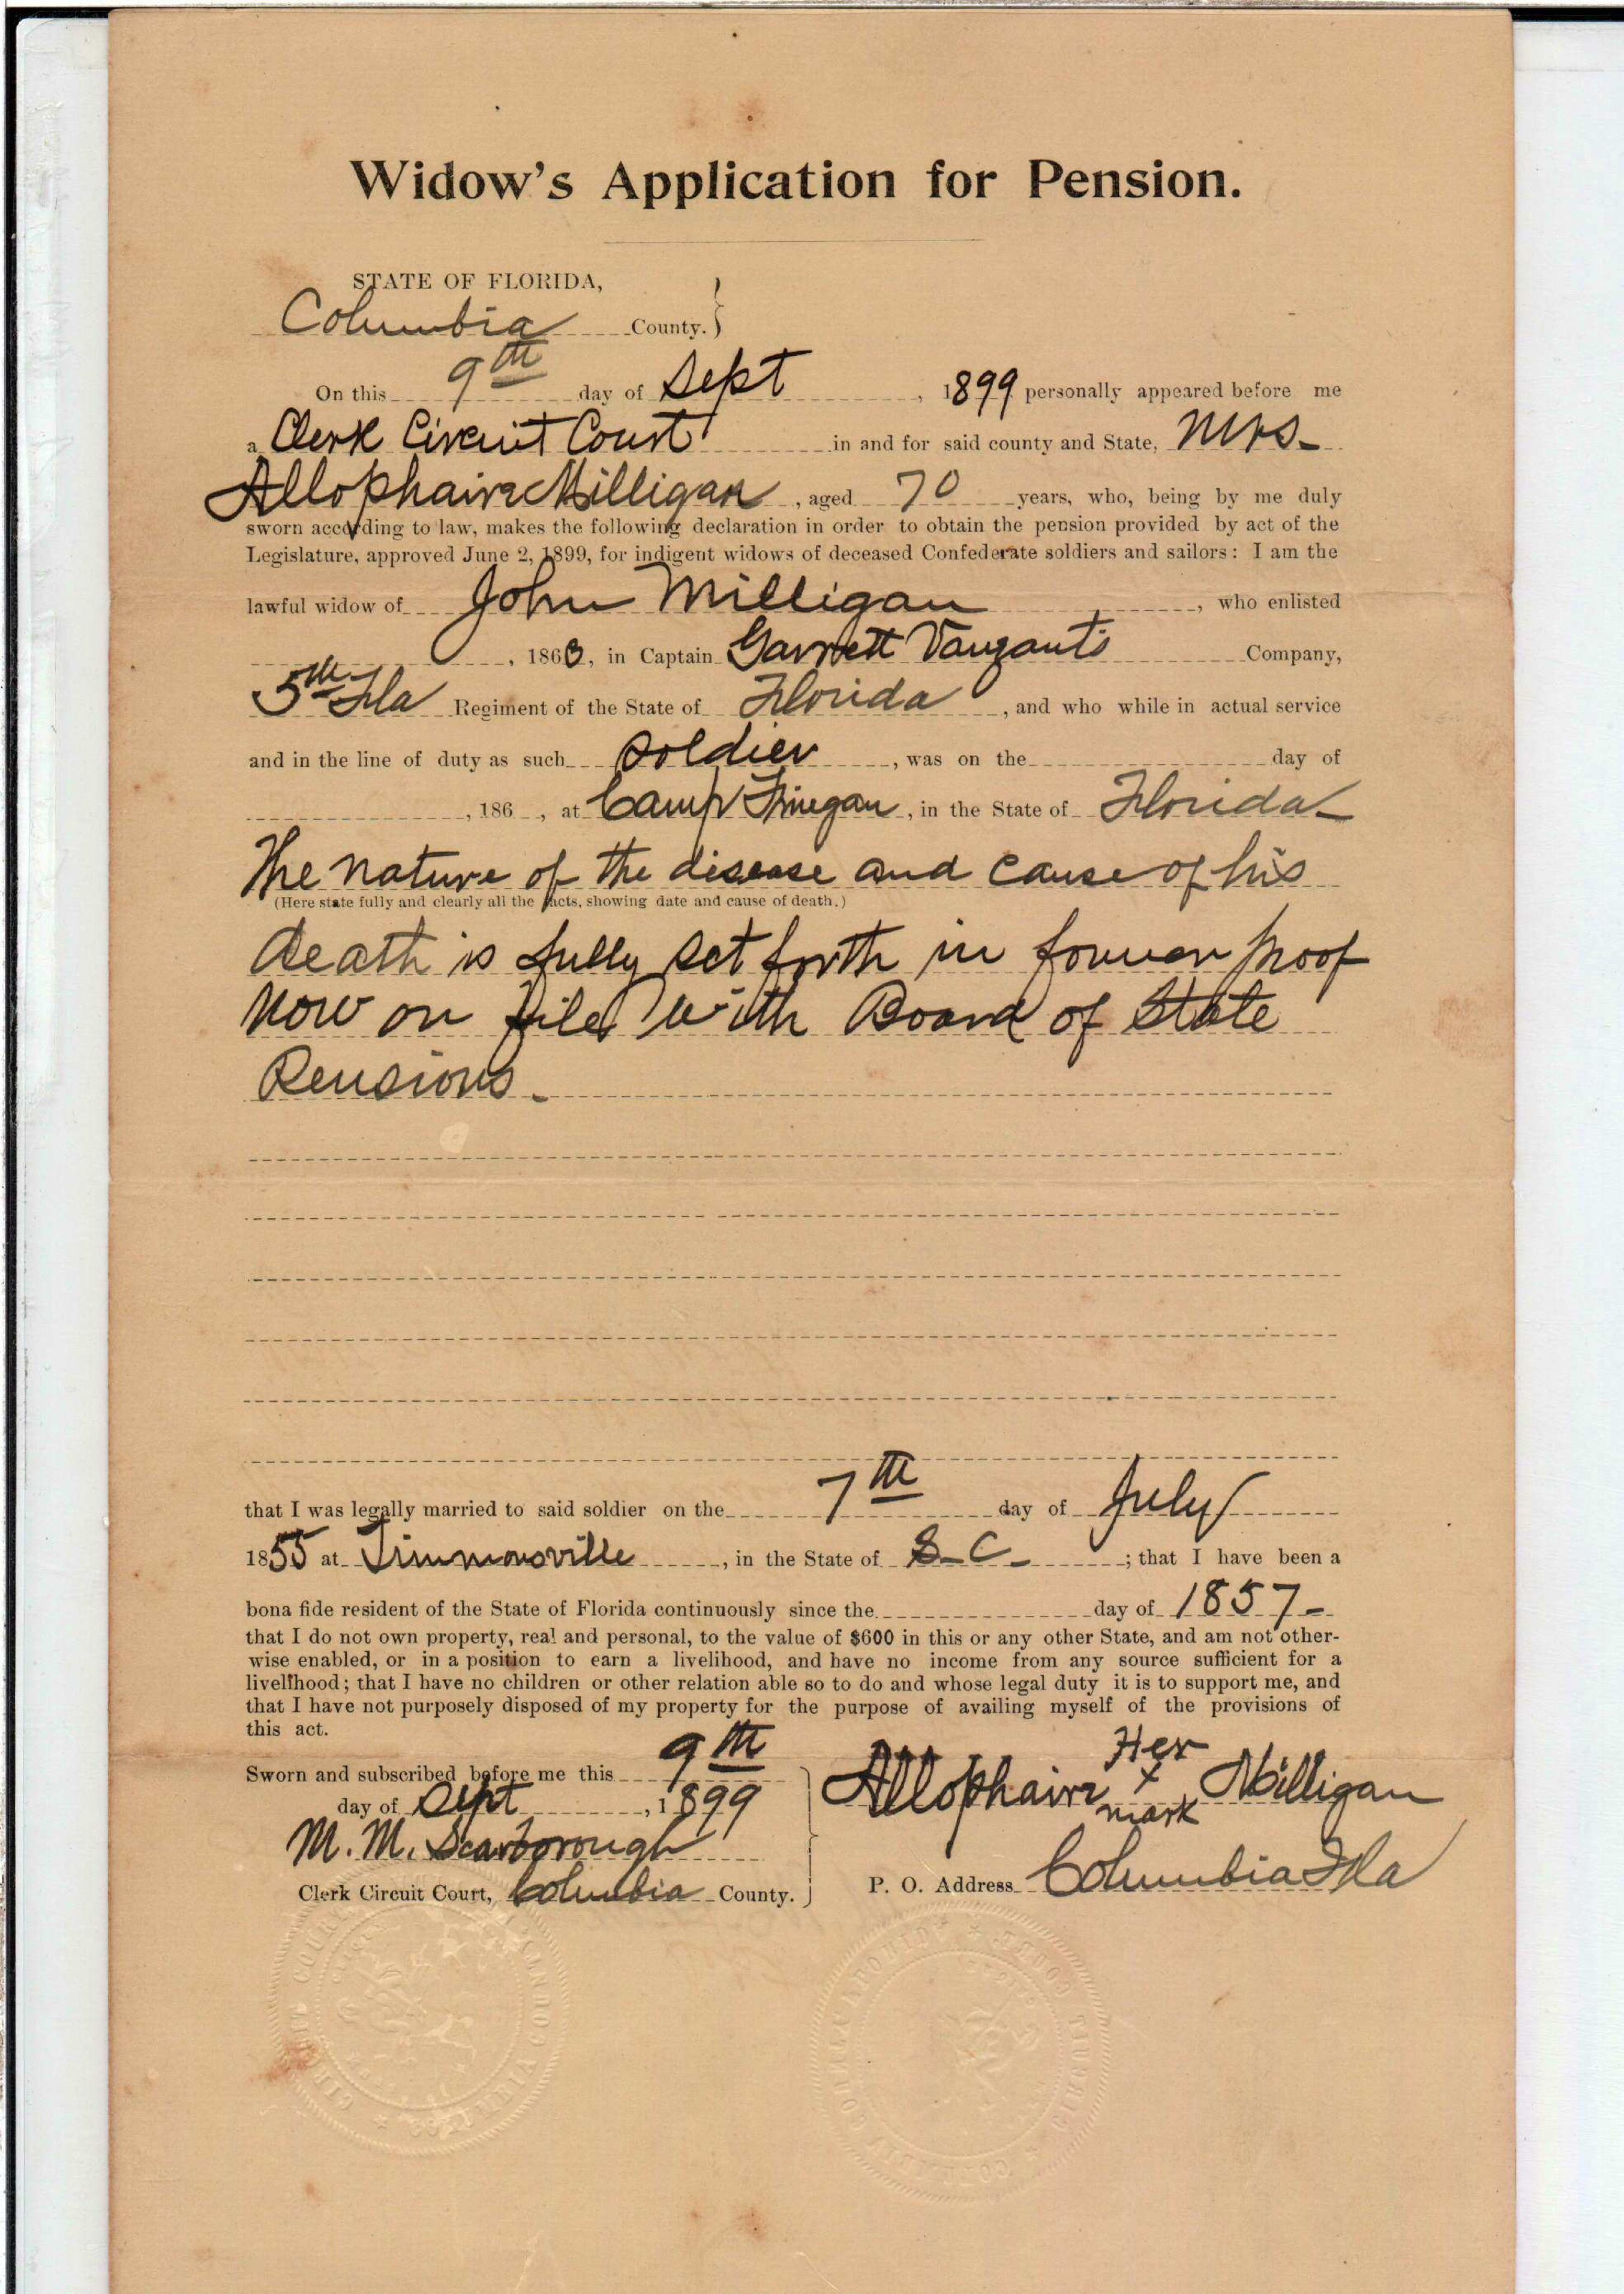 Widow's Application for Pension.
STATE OF FLORIDA,
Columbia County. }
On this 9th day of Sept, 1899 personally appeared before me
a Clerk Circuit Court in and for said county and State, Mrs-
Allophaira Milligan, aged 70 years, who, being by me duly
sworn according to law, makes the following declaration in order to obtain the pension provided by act of the
Legislature, approved June 2, 1899, for indigent widows of deceased Confederate soldiers and sailors: I am the
lawful widow of John Milligan, who enlisted
, 1863, in Captain Garrett Vanzant's Company,
5th Fla Regiment of the State of Florida, and who while in actual service
and in the line of duty as such soldier, was on the day of
, 186 , at Camp Finegan, in the State of Florida-
The nature of the disease and cause of his
(Here state fully and clearly all the facts, showing date and cause of death.)
death is fully set forth in former proof
now on file with Board of State
Pensions.
that I was legally married to said soldier on the 7th day of July
1855 at Timmonsville, in the State of S-C-; that I have been a
bona fide resident of the State of Florida continuously since the day of 1857-
that I do not own property, real and personal, to the value of $600 in this or any other State, and am not other-
wise enabled, or in a position to earn a livelihood, and have no income from any source sufficient for a
livelihood; that I have no children or other relation able so to do and whose legal duty it is to support me, and
that I have not purposely disposed of my property for the purpose of availing myself of the provisions of
this act.
Sworn and subscribed before me this 9th
day of Sept, 1899
M. M. Scarborough
Clerk Circuit Court, Columbia County.
Her
Allophaira x Milligan
mark
P. O. Address Columbia Fla